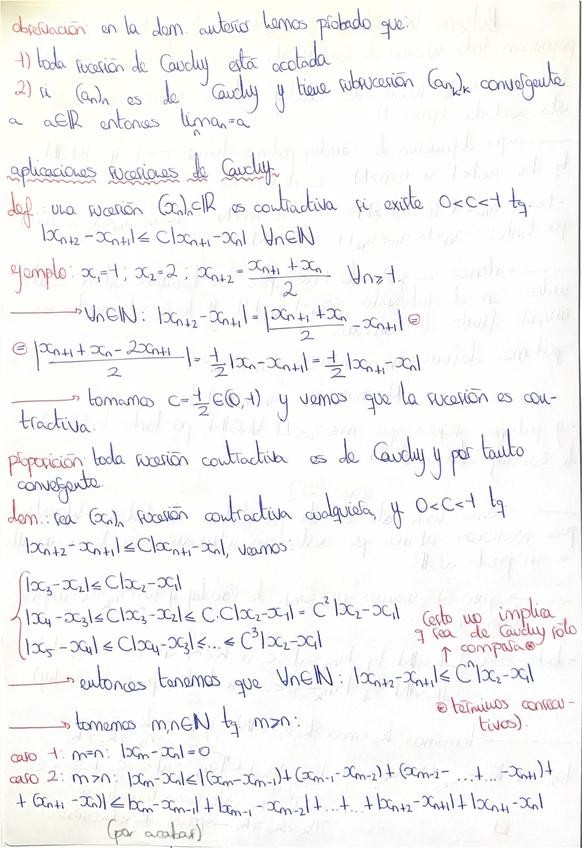 observación en la dem. anterior hemos probado que:
1) toda sucesión de Cauchy está acotada
2) si (an)n es de Cauchy y tiene subsucesión (ank)k convergente
a a∈ℝ entonces lim an=a
n
aplicaciones sucesiones de Cauchy.
def: una sucesión (xn)n∈ℝ es contractiva si existe 0<C<1 tq.
|xn+2-xn+1|≤C|xn+1-xn| ∀n∈ℕ
ejemplo: x1=1; x2=2; xn+2=(xn+1+xn)/2 ∀n≥1.
→ ∀n∈ℕ: |xn+2-xn+1|=|(xn+1+xn)/2-xn+1| ⊜
⊜ |(xn+1+xn-2xn+1)/2|=1/2|xn-xn+1|=1/2|xn+1-xn|
→ tomamos C=1/2∈(0,1) y vemos que la sucesión es con-
tractiva.
proposición: toda sucesión contractiva es de Cauchy y por tanto
convergente.
dem.: sea (xn)n sucesión contractiva cualquiera, y 0<C<1 tq
|xn+2-xn+1|≤C|xn+1-xn|, veamos:
|x3-x2|≤C|x2-x1|
|x4-x3|≤C|x3-x2|≤C·C|x2-x1|=C²|x2-x1|
|x5-x4|≤C|x4-x3|≤...≤C³|x2-x1|
(esto no implica
q sea de Cauchy sólo
↑ compara⊛
→ entonces tenemos que ∀n∈ℕ: |xn+2-xn+1|≤Cⁿ|x2-x1|
⊛términos consecu-
tivos).
→ tomemos m,n∈ℕ tq m>n:
caso 1: m=n: |xm-xn|=0
caso 2: m>n: |xm-xn|≤|(xm-xm-1)+(xm-1-xm-2)+(xm-2-...+...-xn+1)+
+(xn+1-xn)|≤|xm-xm-1|+|xm-1-xm-2|+...+...+|xn+2-xn+1|+|xn+1-xn|
(por acabar)